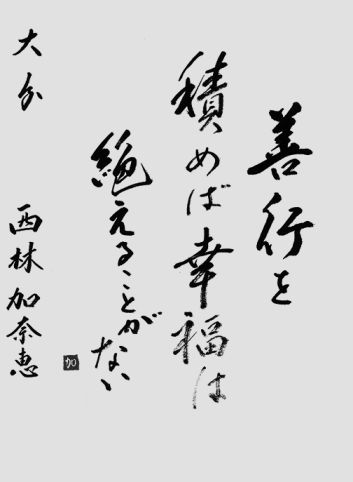 善行を
積めば幸福は
絶えることがない
大分
西林加奈恵
加